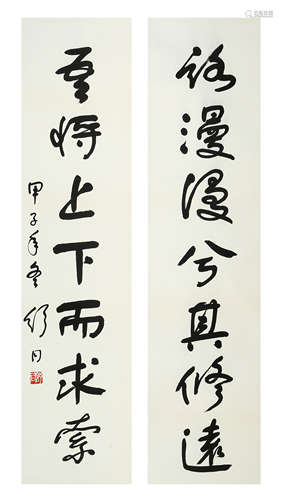 路漫漫兮其修远
吾将上下而求索
甲子年冬 舒同